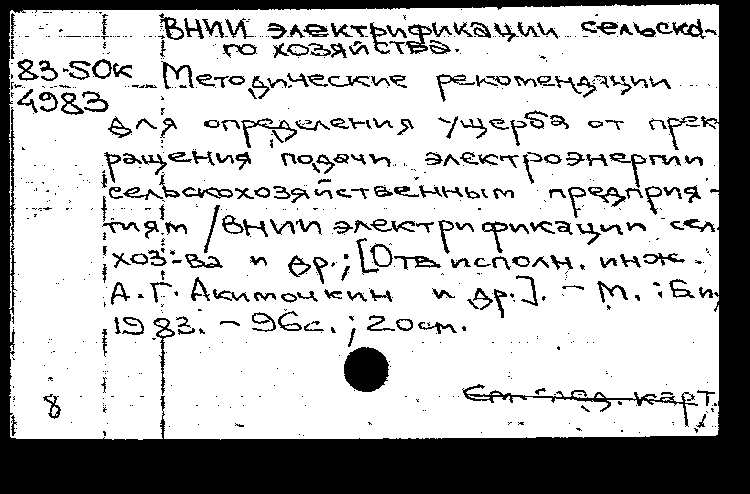 ВНИИ электрификации сельско-
го хозяйства.
83-50к Методические рекомендации
4983
для определения ущерба от прек-
ращения подачи электроэнергии
сельскохозяйственным предприя-
тиям /ВНИИ электрификации сел.
хоз-ва и др.; [Отв исполн. инж.
А.Г. Акимочкин и др.]. - М. : Б.и,
1983. - 96с. ; 20см.
См. след. карт.
8